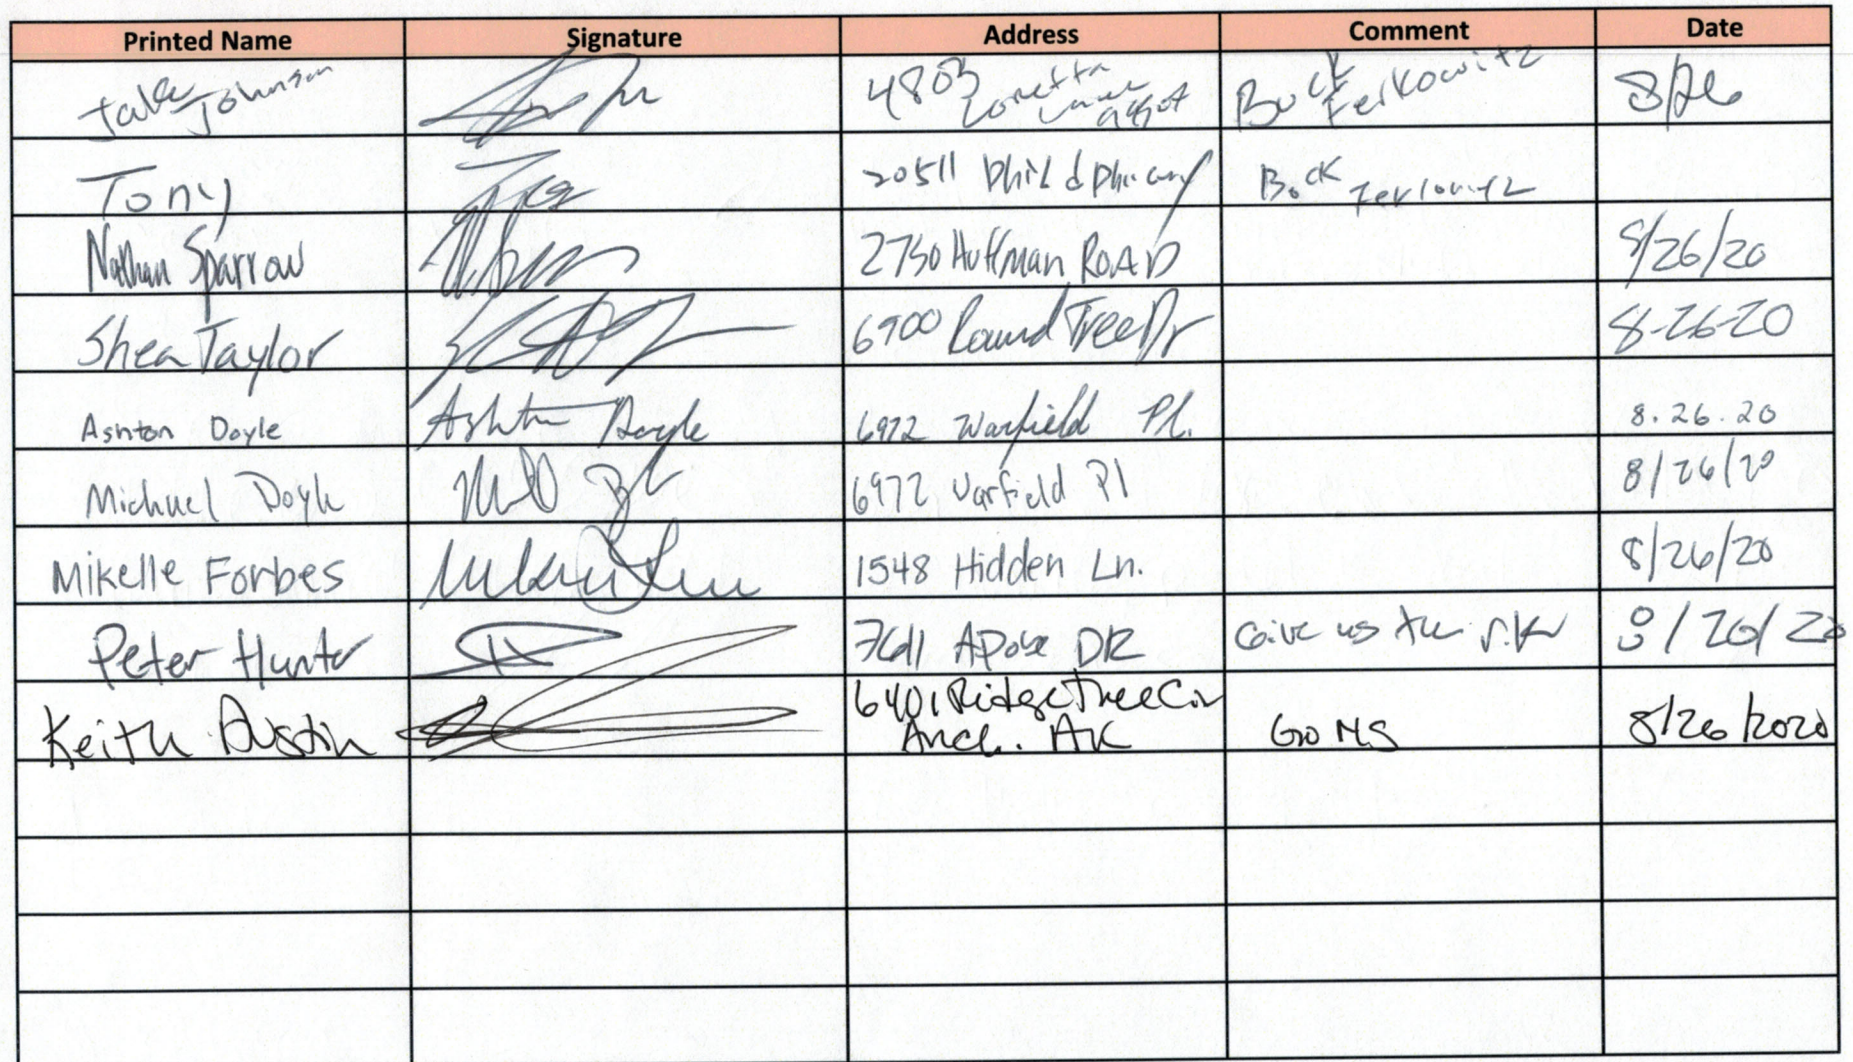 Printed Name Signature Address Comment Date
Jake Johnson 4803 Loretta Lane Buck Ferkowitz 8/26
Tony 20511 Bock
Nathan Sparrow 2750 Huffman ROAD 8/26/20
Shea Taylor 6900 Round Tree Dr 8-26-20
Ashton Doyle Ashton Doyle 6972 Warfield Pl. 8.26.20
Michael Doyle 6972 Varfield Pl 8/26/20
Mikelle Forbes 1548 Hidden Ln. 8/26/20
Peter Hunter DR Give us 8/26/20
Keith Austin 6401 Ridge Tree Cir 8/26/2020
Anch. AK